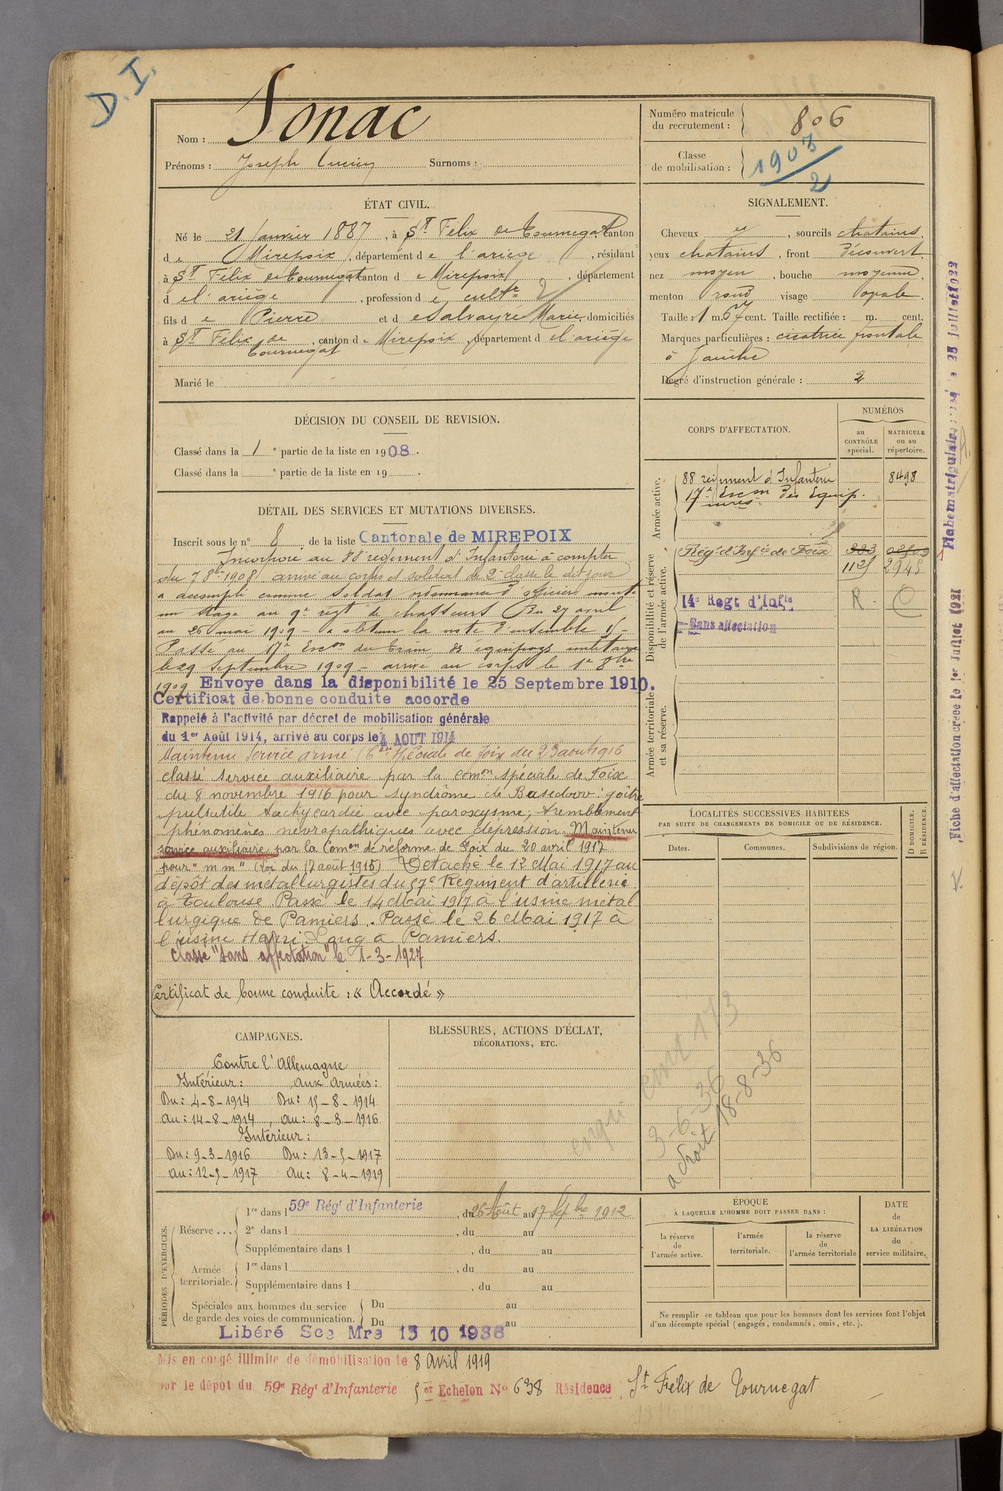 D.I.
Nom : Sonac
Prénoms : Joseph Lucien Surnoms :
Numéro matricule du recrutement : 806
Classe de mobilisation : 1903/2
ÉTAT CIVIL.
Né le 21 Janvier 1887, à St Félix de Tournegat, canton
de Mirepoix, département de l'ariège, résidant
à St Félix de Tournegat canton de Mirepoix, département
de l'ariège, profession de cultr
fils de Pierre et de Salvayre Marie domiciliés
à St Félix de Tournegat, canton de Mirepoix, département de l'ariège
Marié le
SIGNALEMENT.
Cheveux , sourcils chatains
yeux chatains, front découvert
nez moyen, bouche moyenne
menton rond visage ovale.
Taille : 1 m. 57 cent. Taille rectifiée : m. cent.
Marques particulières : cicatrice frontale
à gauche
Degré d'instruction générale : 2
DÉCISION DU CONSEIL DE REVISION.
Classé dans la 1e partie de la liste en 1908.
Classé dans la e partie de la liste en 19 .
DÉTAIL DES SERVICES ET MUTATIONS DIVERSES.
Inscrit sous le n° 8 de la liste Cantonale de MIREPOIX
Incorporé au 88 régiment d'Infanterie à compter
du 7 8bre 1908 arrivé au corps et soldat de 2e classe le dit jour
a accompli comme soldat ordonnance d'officier monté
un stage au 9e régt de chasseurs Du 27 avril
au 26 mai 1909 - a obtenu la note d'ensemble
Passé au 17e Escon du train des équipages militaires
le 29 septembre 1909 - arrivé au corps le 1er 8bre
1909 Envoyé dans la disponibilité le 25 Septembre 1910.
Certificat de bonne conduite accordé
Rappelé à l'activité par décret de mobilisation générale
du 1er Août 1914, arrivé au corps le 4 AOUT 1914
Maintenu service armé Con Spéciale de Foix du 23 aout 1916
classé service auxiliaire par la comon spéciale de Foix
du 8 novembre 1916 pour syndrôme de Basedow : goître
pulsatile tachycardie avec paroxysme, tremblement
phénomènes névropathiques avec dépression. Maintenu
service auxiliaire par la Comon de réforme de Foix du 20 avril 1917
pour "m m" (Loi du 17 août 1915) Détaché le 12 Mai 1917 au
dépôt des métallurgistes du 57e Régiment d'artillerie
à Toulouse Passé le 14 Mai 1917 à l'usine métal
lurgique de Pamiers. Passé le 26 Mai 1917 à
l'usine à Pamiers.
Classé "sans affectation" le 1-3-1927
Certificat de bonne conduite : « Accordé »
CORPS D'AFFECTATION.
NUMÉROS
au CONTRÔLE spécial.
MATRICULE ou au répertoire.
Armée active.
88 régiment d'Infanterie 8498
17e Escon des Equip.
Disponibilité et réserve de l'armée active.
Régt d'Infie de Foix
1125 2945
R.
14e Regt d'Infie
Sans affectation
Armée territoriale et sa réserve.
LOCALITÉS SUCCESSIVES HABITÉES
PAR SUITE DE CHANGEMENTS DE DOMICILE OU DE RÉSIDENCE.
Dates. Communes. Subdivisions de région.
D DOMICILE. R RÉSIDENCE.
3-6-36
a droit 18-8-36
CAMPAGNES.
Contre l'Allemagne
Intérieur : Aux Armées :
Du : 4-8-1914 Du : 15-8-1914
au : 14-8-1914, au : 8-3-1916
Intérieur :
Du : 9-3-1916 Du : 13-5-1917
au : 12-5-1917 Au : 8-4-1919
BLESSURES, ACTIONS D'ÉCLAT,
DÉCORATIONS, ETC.
PÉRIODES D'EXERCICES.
Réserve ...
1re dans l 59e Régt d'Infanterie, du 26 Août au 17 Septbre 1912
2e dans l , du au
Supplémentaire dans l , du au
Armée territoriale.
1re dans l , du au
Supplémentaire dans l , du au
Spéciales aux hommes du service
de garde des voies de communication.
Du au
Du au
Libéré Sce Mre 15 10 1936
ÉPOQUE
À LAQUELLE L'HOMME DOIT PASSER DANS :
la réserve de l'armée active.
l'armée territoriale.
la réserve de l'armée territoriale
DATE de LA LIBÉRATION du service militaire.
Ne remplir ce tableau que pour les hommes dont les services font l'objet
d'un décompte spécial (engagés, condamnés, omis, etc.).
Mis en congé illimité de démobilisation le 8 Avril 1919
par le dépôt du 59e Régt d'Infanterie 5er Echelon No 638 Résidence St Félix de Tournegat
Fiche d'affectation créée le 1er Juillet 1921